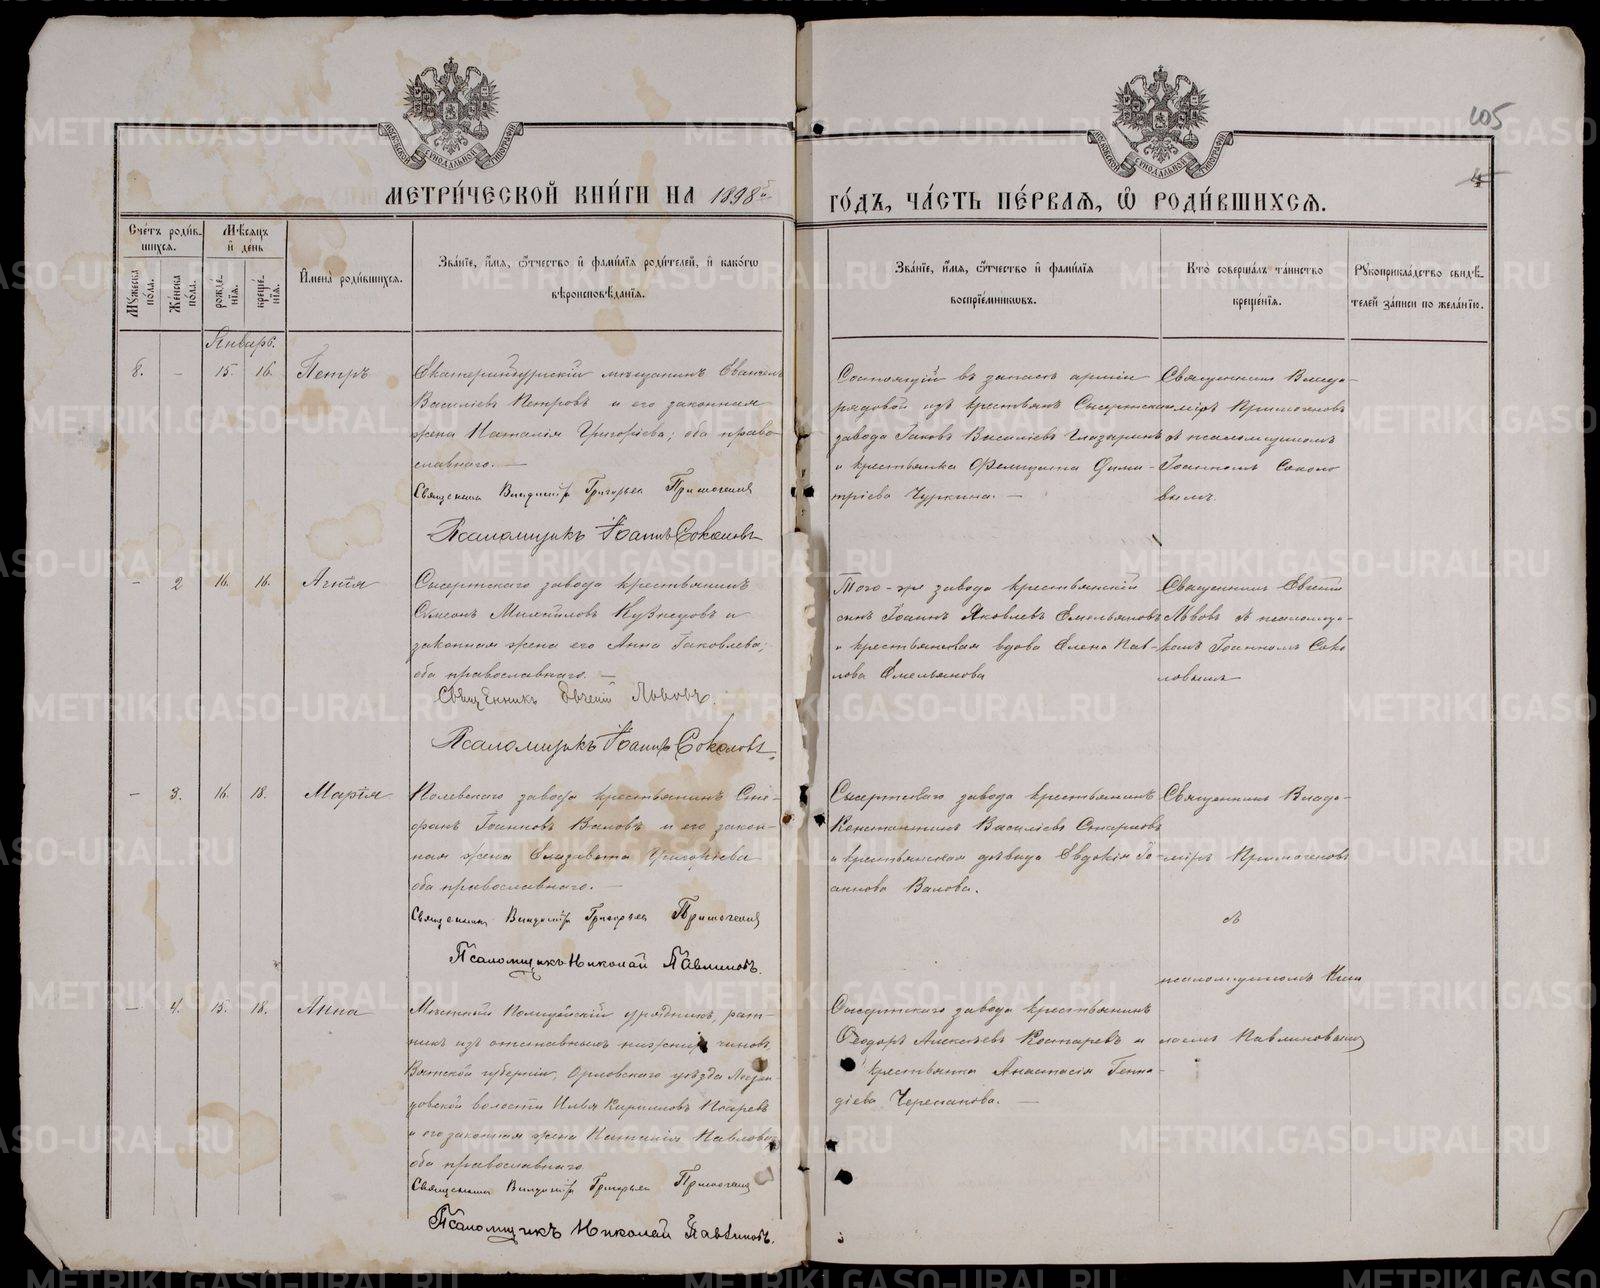 105
4
МОСКОВСКОЙ СѴНОДАЛЬНОЙ ТИПОГРАФІИ
МОСКОВСКОЙ СѴНОДАЛЬНОЙ ТИПОГРАФІИ
МЕТРИ́ЧЕСКОЙ КНИ́ГИ НА 1898й
ГО́ДЪ, ЧА́СТЬ ПЕ́РВАѦ, Ѽ РОДИ́ВШИХСѦ.
Сче́тъ роди́в-
шихсѧ.
Мꙋ́жеска по́ла.
Же́нска по́ла.
Мѣ́сяцъ
и҆ де́нь
рожде́-
нїѧ.
креще́-
нїѧ.
И҆мена̀ роди́вшихсѧ.
Зва́нїе, и҆́мѧ, ѻ҆́тчество и҆ фами́лїѧ роди́телей, и҆ како́гѡ
вѣроисповѣ́данїѧ.
Зва́нїе, и҆́мѧ, ѻ҆́тчество и҆ фами́лїѧ
воспрїе́мникѡвъ.
Кто̀ соверша́лъ та́инство
креще́нїѧ.
Рꙋкоприкла́дство свидѣ́-
телей за́писи по жела́нїю.
Январь.
8.
-
15.
16.
Петръ
Екатеринбургскій мѣщанинъ
Василіевъ Петровъ и его законная
жена Наталія Григоріева; оба право-
славнаго. —
Священникъ Владиміръ Григорьев
Псаломщикъ Іоаннъ Соколовъ
Состоящій въ запасѣ арміи
рядовой изъ крестьянъ Сысертскаго
завода Іаковъ Василіевъ Глазаринъ
и крестьянка Фелицата Дими-
тріева Чуркина. —
Священникъ Влади-
міръ Примогеновъ
съ псаломщикомъ
Іоанномъ Соколо
вымъ.
-
2
16.
16.
Агнія
Сысертскаго завода крестьянинъ
Сѵмеонъ Михайловъ Кузнецовъ и
законная жена его Анна Іаковлева;
оба православнаго. —
Священникъ Евгеній Львовъ.
Псаломщикъ Іоаннъ Соколовъ.
Того-же завода крестьянскій
сынъ Іоаннъ Яковлевъ Емельяновъ
и крестьянская вдова Елена Пав-
лова Емельянова
Священникъ Евгеній
Львовъ съ псаломщи-
комъ Іоанномъ Соко
ловымъ
-
3.
16.
18.
Марія
Полевскаго завода крестьянинъ Сте-
фанъ Іоанновъ Валовъ и его закон-
ная жена Елизавета Григоріева
оба православнаго. —
Священникъ Владиміръ Григорьев
Псаломщикъ Николай Павлиновъ.
Сысертскаго завода крестьянинъ
Константинъ Василіевъ Старковъ
и крестьянская дѣвица Евдокія Іо-
аннова Валова.
Священникъ Влади-
міръ Примогеновъ
съ
псаломщикомъ Нико
лаемъ Павлиновымъ
-
4.
15.
18.
Анна
Мѣстный Полицейскій урядникъ, рат-
никъ изъ отставныхъ нижнихъ чиновъ
Вятской губерніи, Орловскаго уѣзда
довской волости Илья Кирилловъ Писаревъ
и его законная жена Наталія Павлова
оба православнаго
Священникъ Владиміръ Григорьев
Псаломщикъ Николай Павлиновъ.
Сысертскаго завода крестьянинъ
Ѳеодоръ Алексѣевъ Костаревъ и
крестьянка Анастасія Генна-
діева Черепанова. —